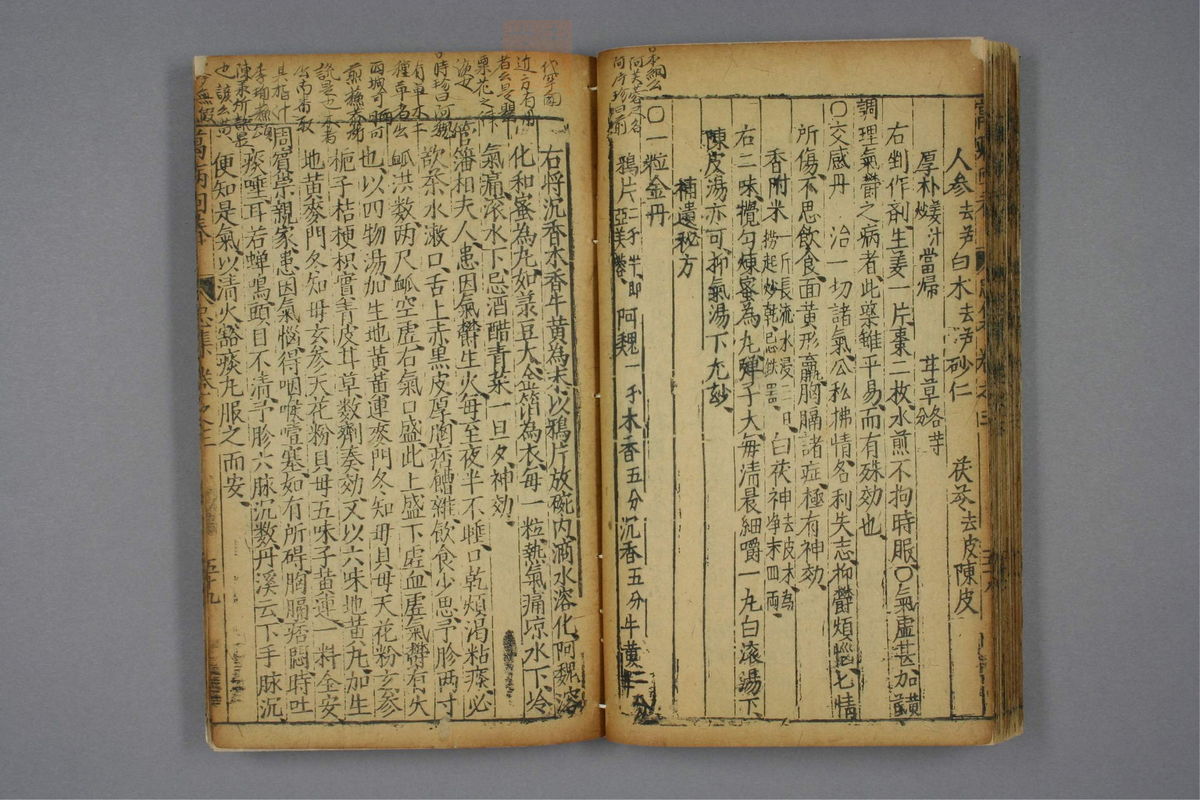 人参去芦白木去芦砂仁 茯苓去皮陳皮
厚朴姜汁炒當帰 甘草各等分
右剉作剤生姜一片棗二枚水煎不拘時服〇氣虚甚加黄
調理氣鬱之病者此薬雖平易而有殊効也
〇交感丹 治一切諸氣公私拂情名利失志抑鬱煩惱七情
所傷不思飲食面黄形羸胸膈諸症極有神効
香附米一斤長流水浸三日撈起炒乾忌鉄器白茯神去皮木為净末四両
右二味攪匀煉蜜為丸弾子大毎清晨細嚼一丸白滚湯下
陳皮湯亦可抑氣湯下尤玅
補遺秘方
〇一粒金丹
鴉片二十半即亞芙蓉阿魏一十木香五分沉香五分牛黄二分半
右将沉香木香牛黄為末以鴉片放碗内滴水溶化阿魏溶
化和蜜為丸如菉豆大金箔為衣毎一粒熱氣痛凉水下冷
氣痛滚水下忌酒醋青菜一日夕神効
管藩相夫人患因氣鬱生火每至夜半不睡口乾煩渇粘痰必
欲茶水漱口舌上赤黒皮厚胸痞饍雑飲食少思予胗两寸
脉洪数两尺脉空虚右氣口盛此上盛下虚血虚氣鬱有火
也以四物湯加生地黄黄連麥門冬知母貝母天花粉玄参
梔子桔梗枳實青皮甘草数劑奏効又以六味地黄丸加生
地黄麥門冬知母玄参天花粉貝母五味子黄連一料全安
周賓崇親家患因氣惱得咽喉噎塞如有所碍胸膈痞悶時吐
痰唾耳若蝉鳴頭目不清予胗六脉沉数丹溪云下手脉沉
便知是氣以清火豁痰丸服之而安
五十九